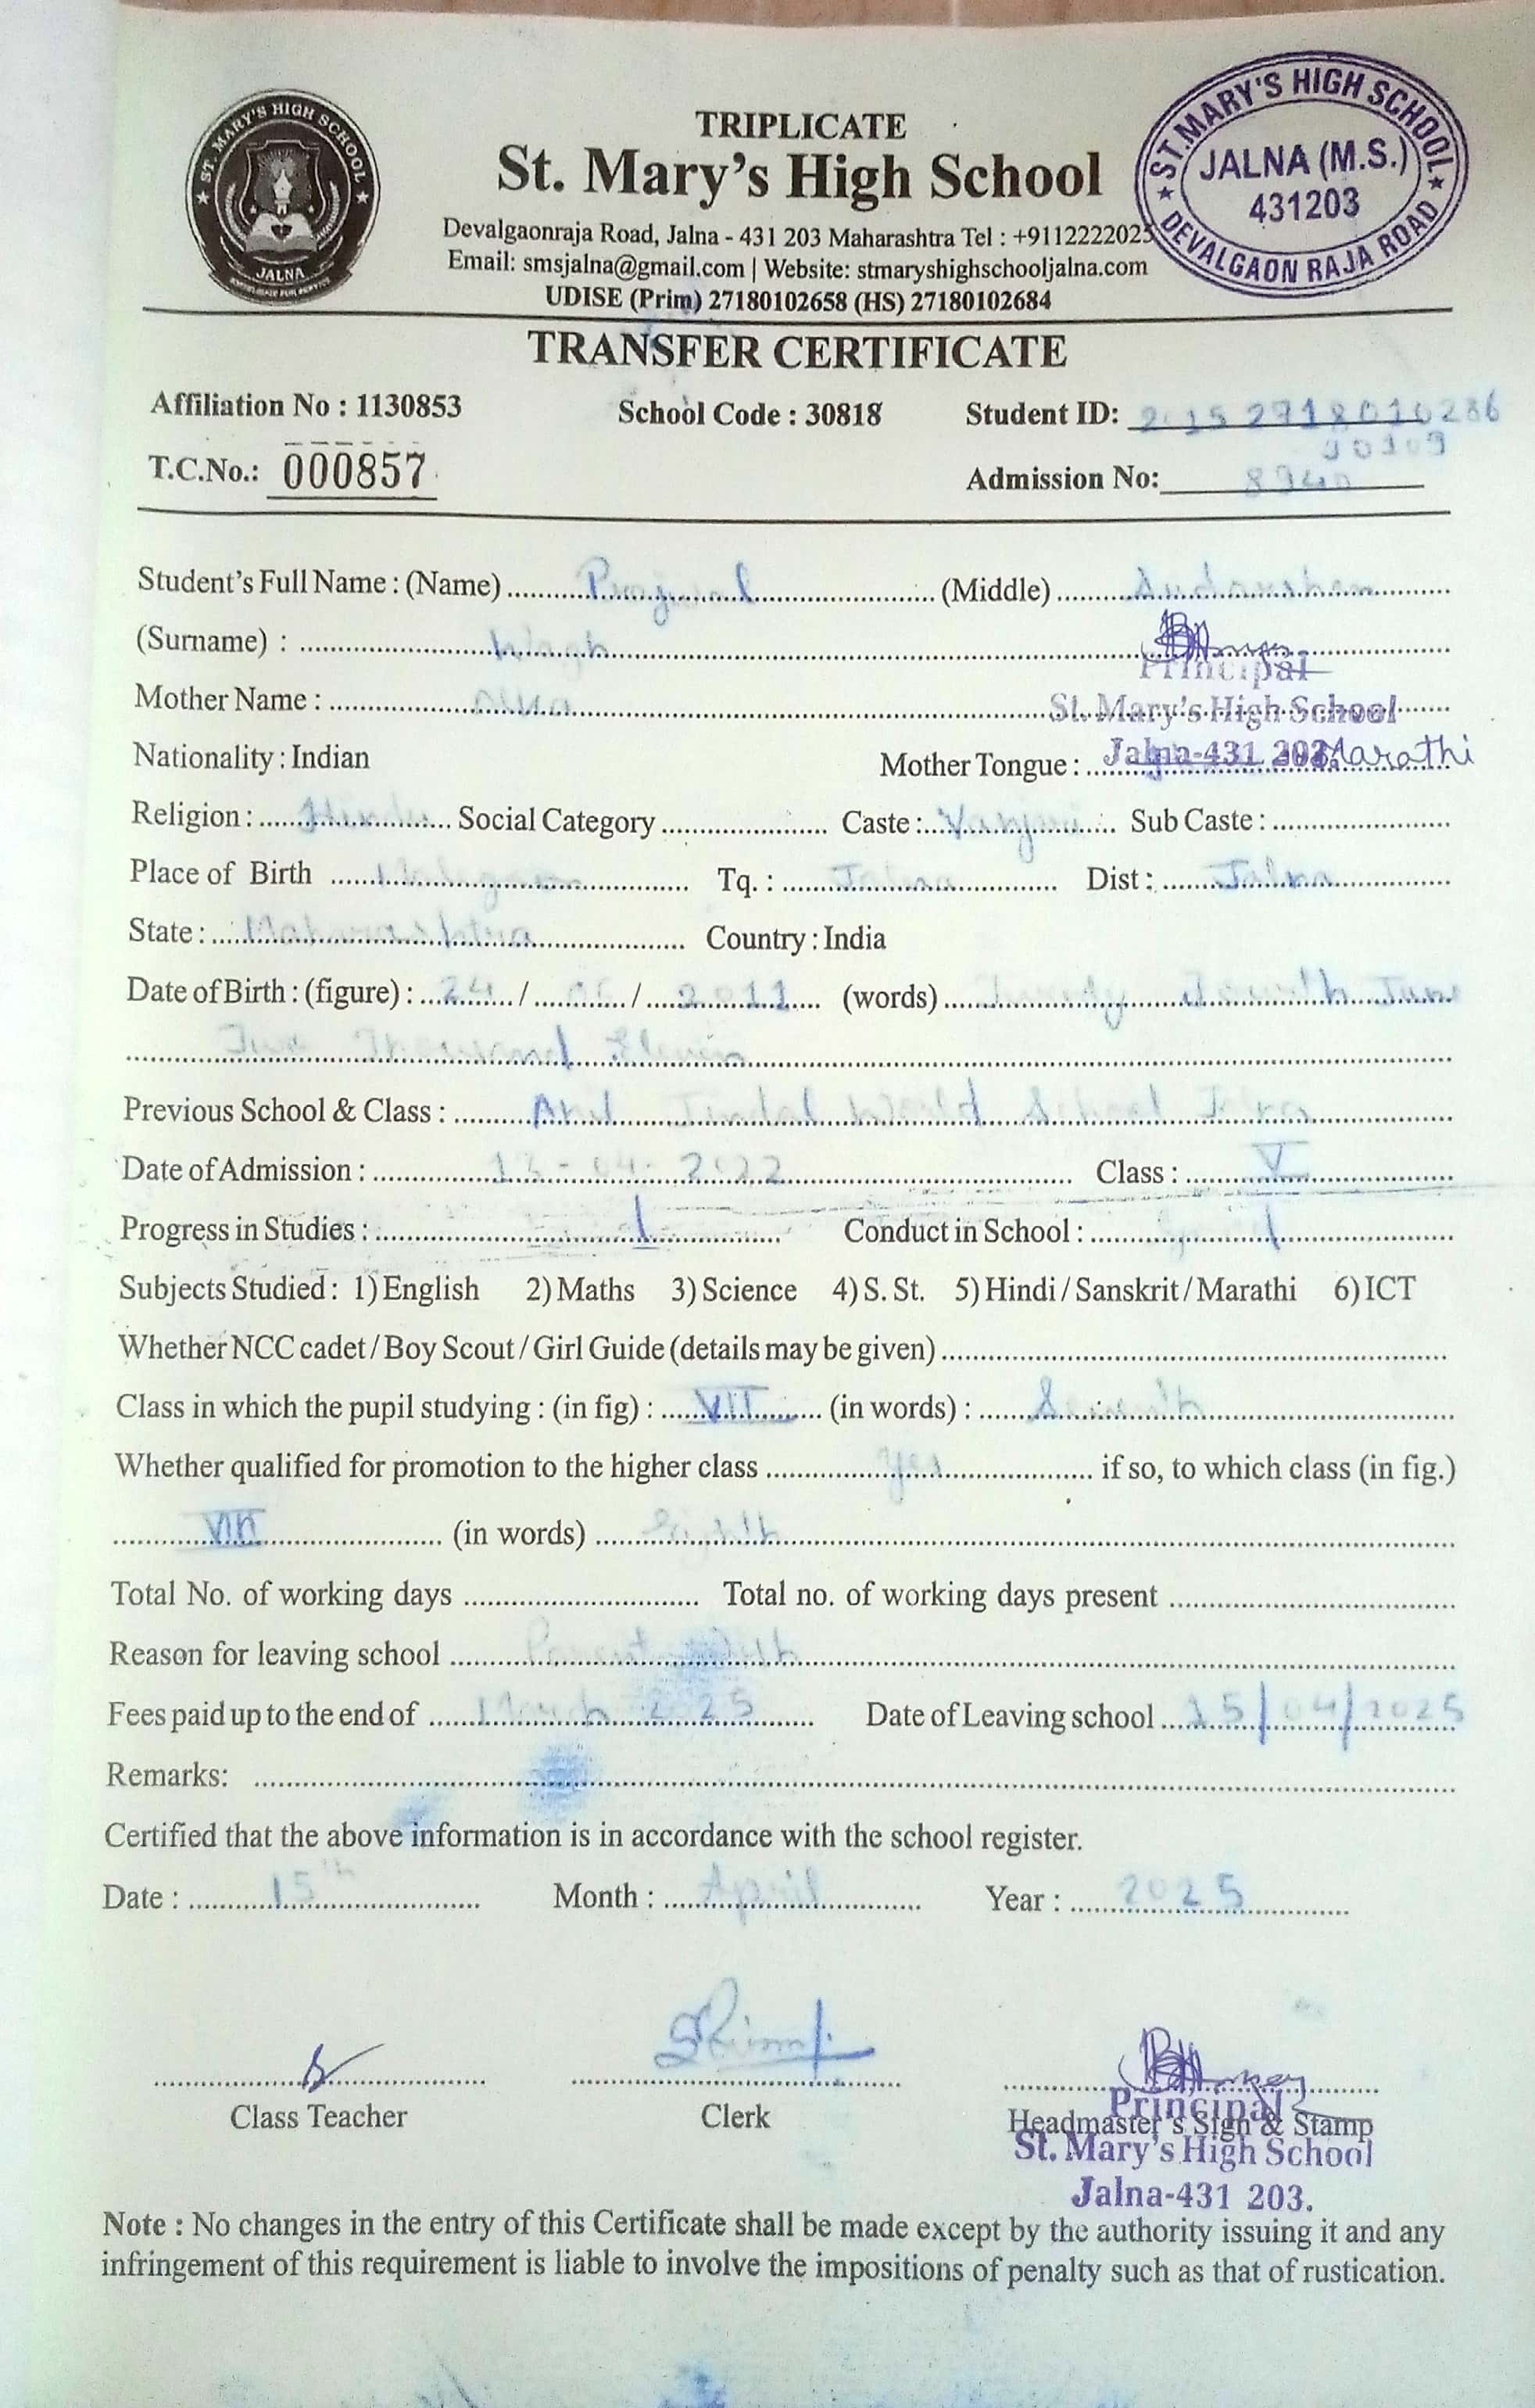 ST. MARY'S HIGH SCHOOL
JALNA
TRIPLICATE
St. Mary's High School
Devalgaonraja Road, Jalna - 431 203 Maharashtra Tel : +9112222025
Email: smsjalna@gmail.com | Website: stmaryshighschooljalna.com
UDISE (Prim) 27180102658 (HS) 27180102684
ST.MARY'S HIGH SCHOOL
JALNA (M.S.)
431203
DEVALGAON RAJA ROAD
TRANSFER CERTIFICATE
Affiliation No : 1130853 School Code : 30818 Student ID:
T.C.No.: 000857 Admission No:
Student's Full Name : (Name) (Middle)
(Surname) : Wagh
Principal
Mother Name : St. Mary's High School
Nationality : Indian Mother Tongue : Jalna-431 203. Marathi
Religion : Hindu Social Category Caste : Vanjari Sub Caste :
Place of Birth Tq. : Jalna Dist : Jalna
State : Maharashtra Country : India
Date of Birth : (figure) : 24 / 06 / 2011 (words) Twenty Fourth June
Two Thousand Eleven
Previous School & Class : School Jalna
Date of Admission : 13-04-2022 Class : V
Progress in Studies : Conduct in School :
Subjects Studied : 1) English 2) Maths 3) Science 4) S. St. 5) Hindi / Sanskrit / Marathi 6) ICT
Whether NCC cadet / Boy Scout / Girl Guide (details may be given)
Class in which the pupil studying : (in fig) : VII (in words) : Seventh
Whether qualified for promotion to the higher class Yes if so, to which class (in fig.)
VIII (in words) Eighth
Total No. of working days Total no. of working days present
Reason for leaving school Parent
Fees paid up to the end of March 2025 Date of Leaving school 15/04/2025
Remarks:
Certified that the above information is in accordance with the school register.
Date : 15th Month : April Year : 2025
Class Teacher Clerk Headmaster's Sign & Stamp
Principal
St. Mary's High School
Jalna-431 203.
Note : No changes in the entry of this Certificate shall be made except by the authority issuing it and any
infringement of this requirement is liable to involve the impositions of penalty such as that of rustication.